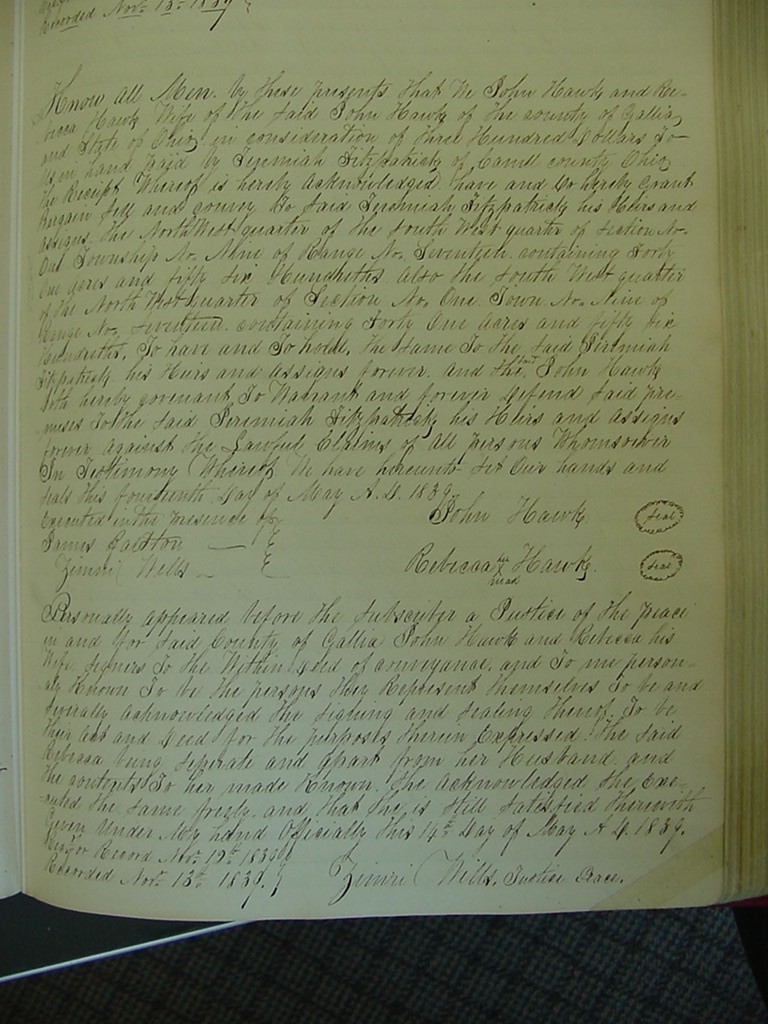 Recorded Nov. 13th 1839
Know all Men by these presents that We John Hawk and Re-
becca Hawk Wife of the Said John Hawk of the county of Gallia
and State of Ohio in consideration of Three Hundred Dollars To
Us in hand paid by Jeremiah Fitzpatrick of County Ohio
the Receipt Whereof is hereby Acknowledged have and Do hereby Grant
Bargain Sell and convey To Said Jeremiah Fitzpatrick his Heirs and
Assigns the North West quarter of the South West quarter of Section No.
One Township No. Nine of Range No. Seventeen containing Forty
One acres and fifty Six Hundreths Also the South West quarter
of the North West Quarter of Section No. One Town. No. Nine of
Range No. Seventeen containing Forty One Acres and fifty Six
Hundreths. To have and To hold. the Same To the Said Jeremiah
Fitzpatrick his Heirs and Assigns forever. and the said John Hawk
doth hereby covenant To Warrant and forever Defend Said pre-
mises To the Said Jeremiah Fitzpatrick his Heirs and Assigns
forever against the Lawful Claims of All persons Whomsoever
In Testimony Whereof We have hereunto Set Our hands and
seals this fourteenth Day of May A. D. 1839
Executed in the presence of John Hawk Seal
James
Zimri Wells Rebecca her mark Hawk Seal
Personally appeared before the Subscriber a Justice of the peace
in and for Said County of Gallia John Hawk and Rebecca his
Wife Signers To the Within Deed of conveyance and To me person-
aly Known To be the persons they Represent themselves To be and
Severally Acknowledged the Signing and Sealing thereof To be
their Act and Deed for the purposes therein Expressed. the Said
Rebecca being Seperate and Apart from her Husband and
the contents To her made Known. She Acknowledged She Exe-
cuted the Same freely and that She is Still Satisfied therewith
Given Under My hand Officially this 14th Day of May A D. 1839.
Recd for Record Nov. 12th 1839
Recorded Nov. 13th 1839. Zimri Wells. Justice Peace.